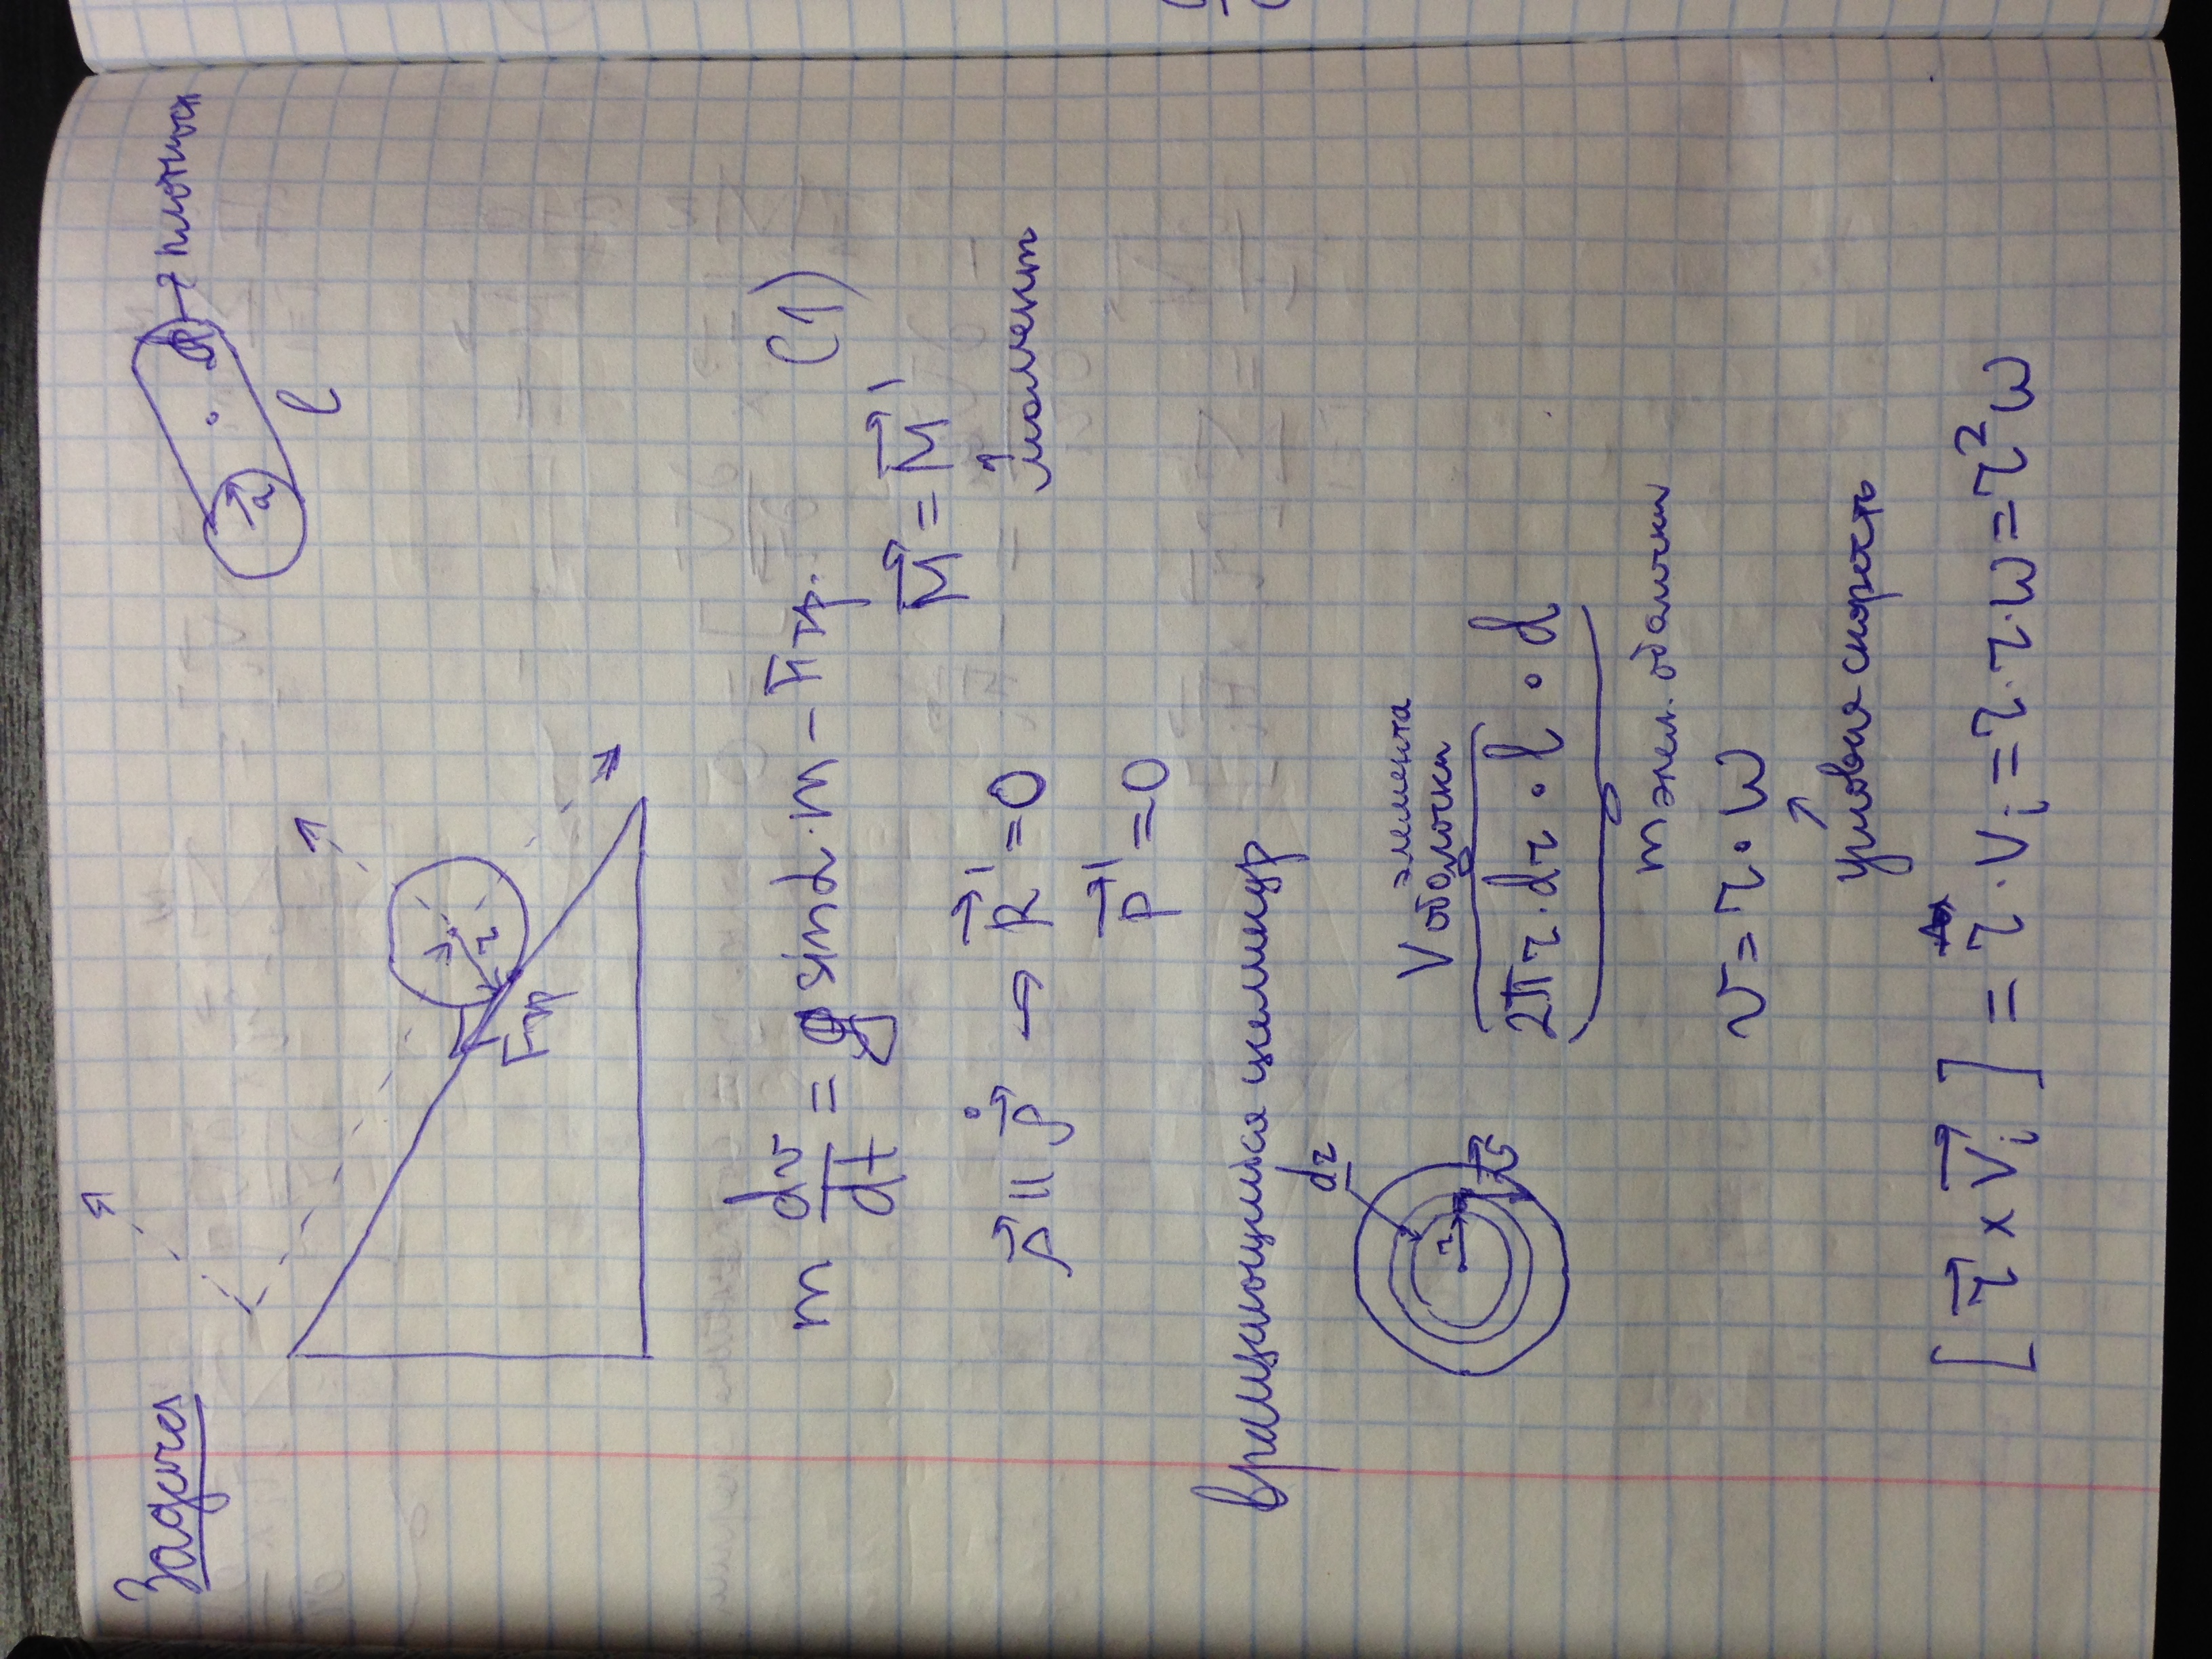 Задача
a
d → плотная
l
r
Fтр
m dv/dt = g sinα · m − Fтр. (1)
M⃗ = M⃗'
↑ момент
ρ⃗ ∥ ρ⃗̇ → R⃗' = 0
P⃗' = 0
Вращающийся цилиндр
dr
r
V элемента
оболочки
2πr · dr · l · d
m элем. оболочки
v = r · ω
↑
угловая скорость
[r⃗ × V⃗i] = r · Vi = r · r · ω = r²ω